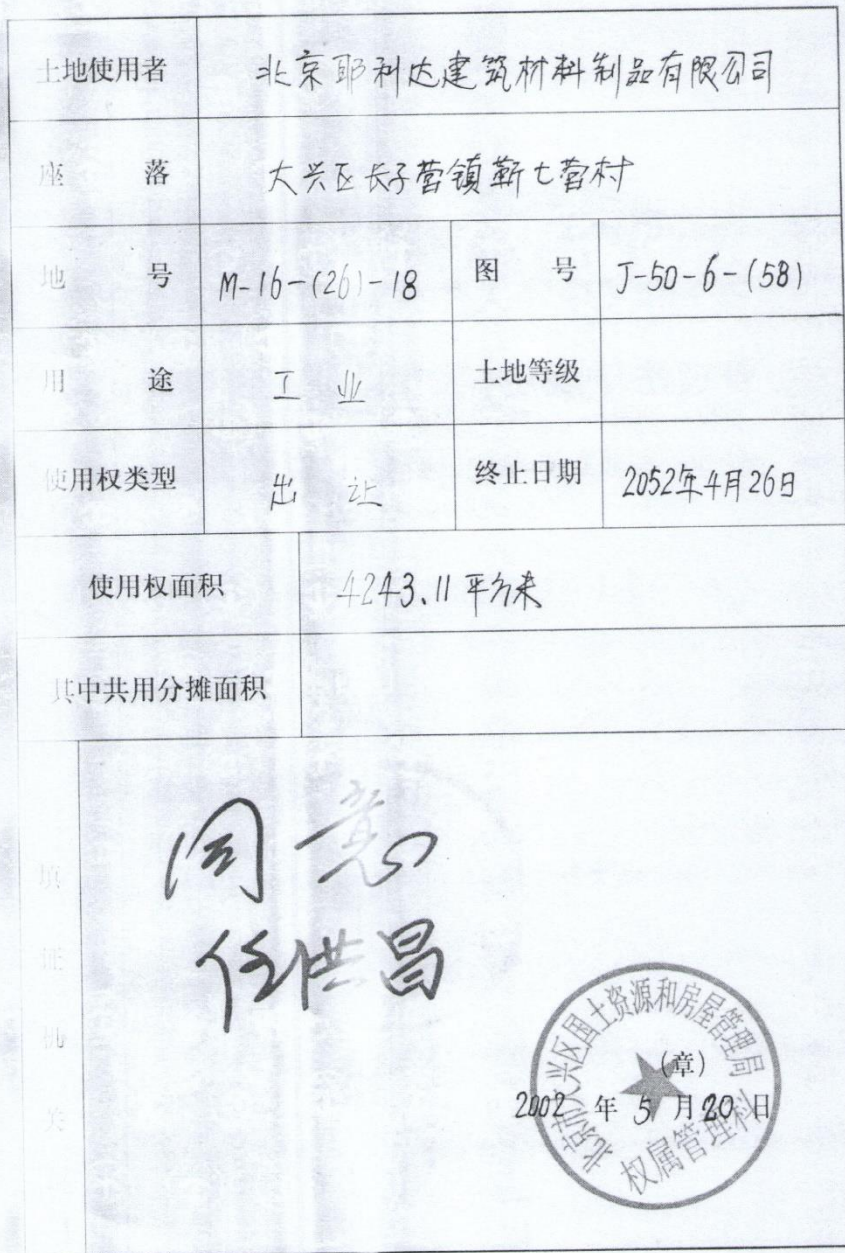 土地使用者 北京耶利达建筑材料制品有限公司
座 落 大兴区长子营镇靳七营村
地 号 M-16-(26)-18 图 号 J-50-6-(58)
用 途 工 业 土地等级
使用权类型 出 让 终止日期 2052年4月26日
使用权面积 4243.11平方米
其中共用分摊面积
填证机关
同意
任洪昌
北京市大兴区国土资源和房屋管理局
(章)
2002 年 5 月 20 日
权属管理科